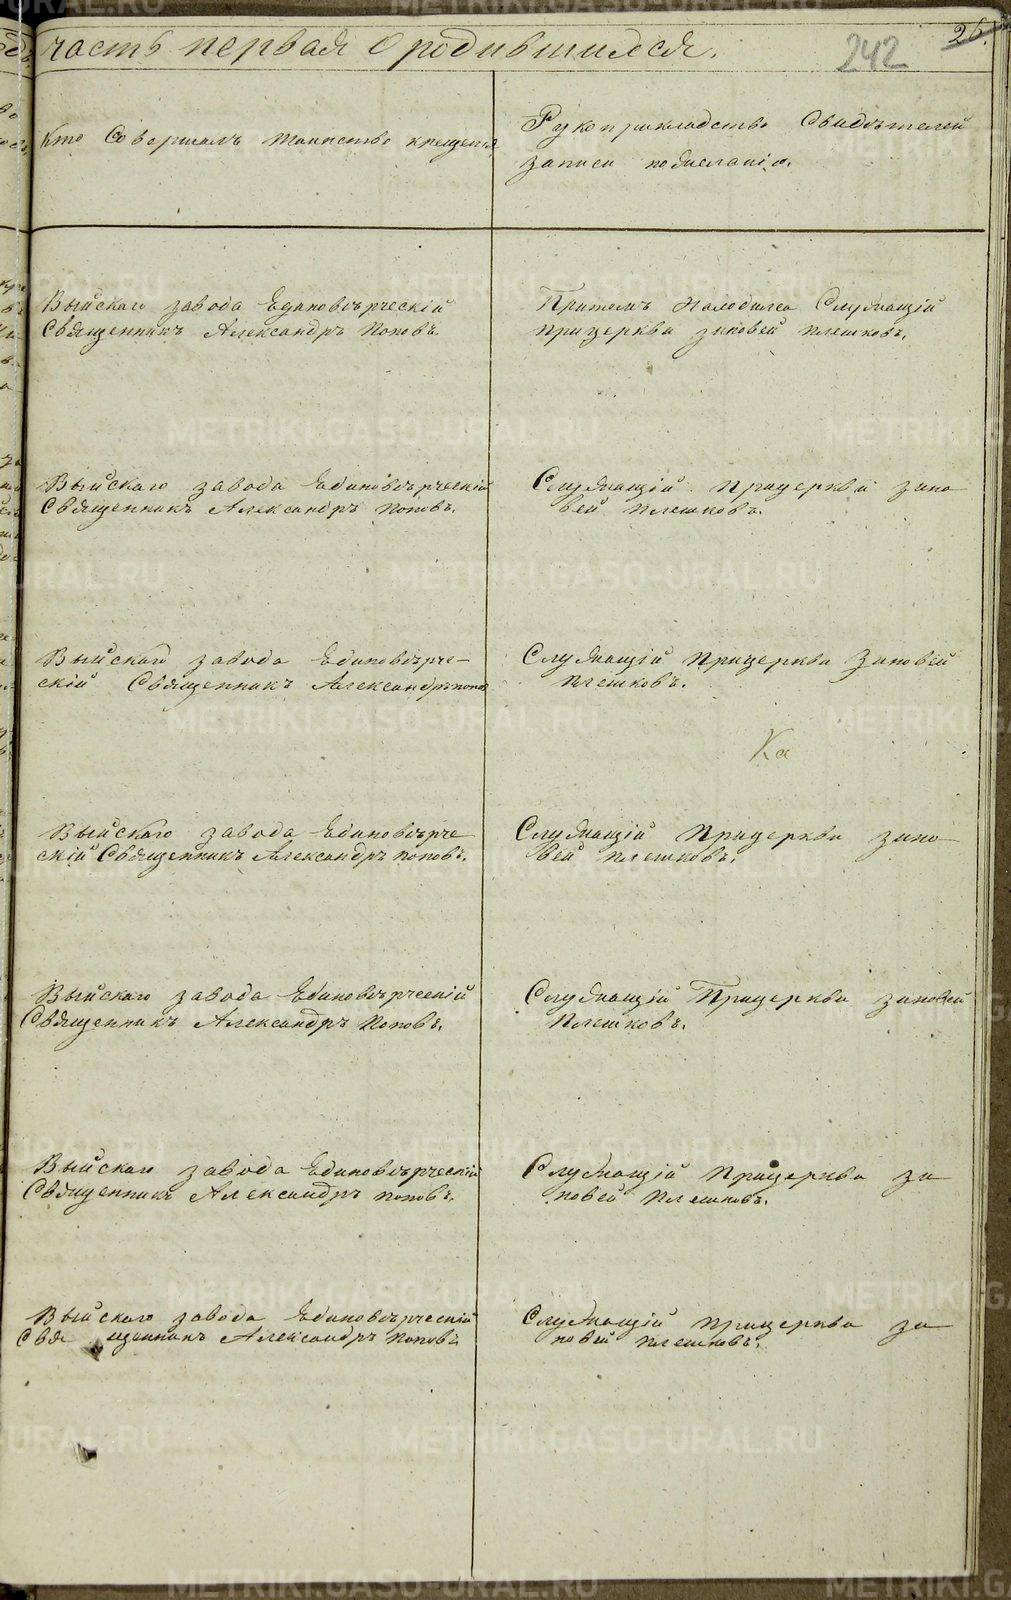 часть первая о родившихся.
26.
242
Кто Совершалъ таинство крещенія
Рукоприкладство Свидѣтелей
записи
Выйскаго завода Единовѣрческій
Священникъ Александръ Поповъ.
Притомъ Находился Служащій
прицеркви зиновей плешковъ.
Выйскаго завода Единовѣрческій
Священникъ Александръ поповъ.
Служащій прицеркви зино
вей плешковъ.
Выйскаго завода Единовѣрче-
скій Священникъ Александръ попов
Служащій прицеркви Зиновей
плешковъ.
Ка
Выйскаго завода Единовѣрче
скій Священникъ Александръ поповъ.
Служащій прицеркви зино
вей плешковъ.
Выйскаго завода Единовѣрческій
Священникъ Александръ Поповъ.
Служащій Прицеркви зиновей
Плешковъ.
Выйскаго завода Единовѣрческій
Священникъ Александръ поповъ.
Служащій прицеркви зи
новей Плешковъ.
Выйскаго завода Единовѣрческій
Свя щенникъ Александръ поповъ
Служащій прицеркви зи
новей плешковъ.
METRIKI.GASO-URAL.RU